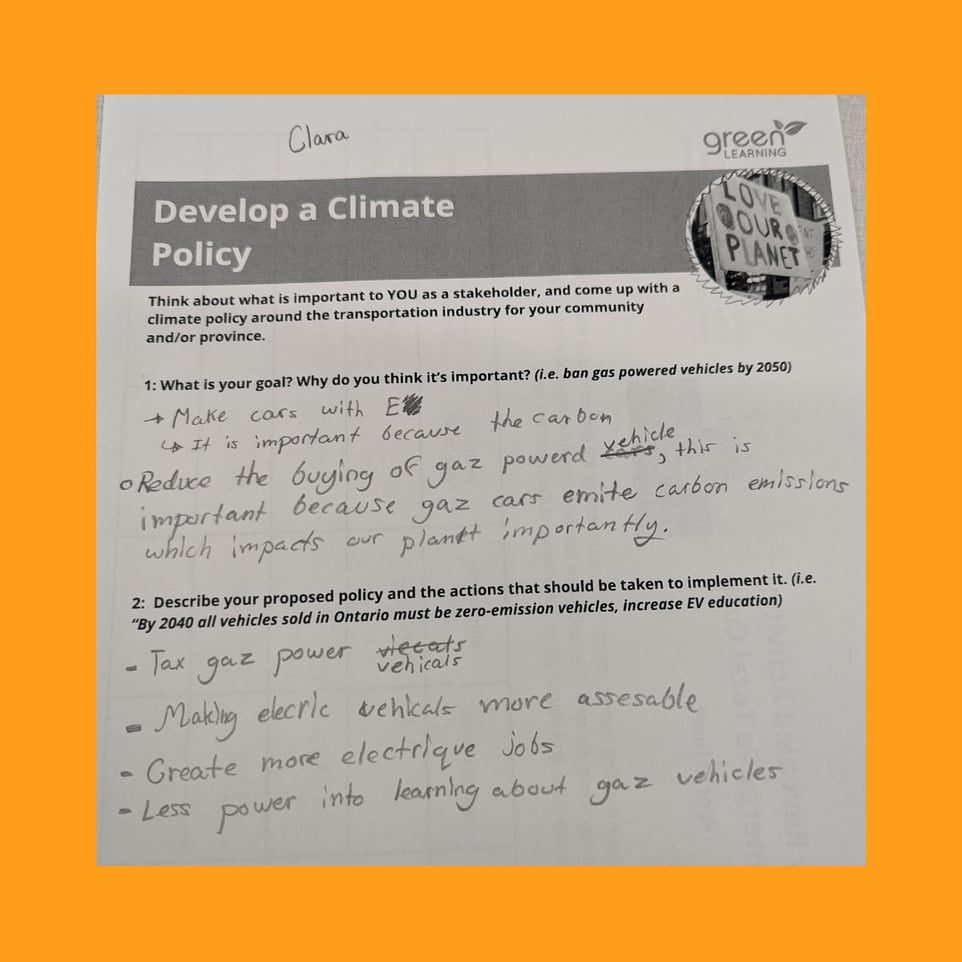 Clara
green
LEARNING
LOVE
OUR
PLANET
Develop a Climate
Policy
Think about what is important to YOU as a stakeholder, and come up with a
climate policy around the transportation industry for your community
and/or province.
1: What is your goal? Why do you think it's important? (i.e. ban gas powered vehicles by 2050)
→ Make cars with E
↳ It is important because the carbon
o Reduce the buying of gaz powerd cars vehicle, this is
important because gaz cars emite carbon emissions
which impacts our planet importantly.
2: Describe your proposed policy and the actions that should be taken to implement it. (i.e.
“By 2040 all vehicles sold in Ontario must be zero-emission vehicles, increase EV education)
- Tax gaz power
vehicals
- Making elecric vehicals more assesable
- Create more electrique jobs
- Less power into learning about gaz vehicles